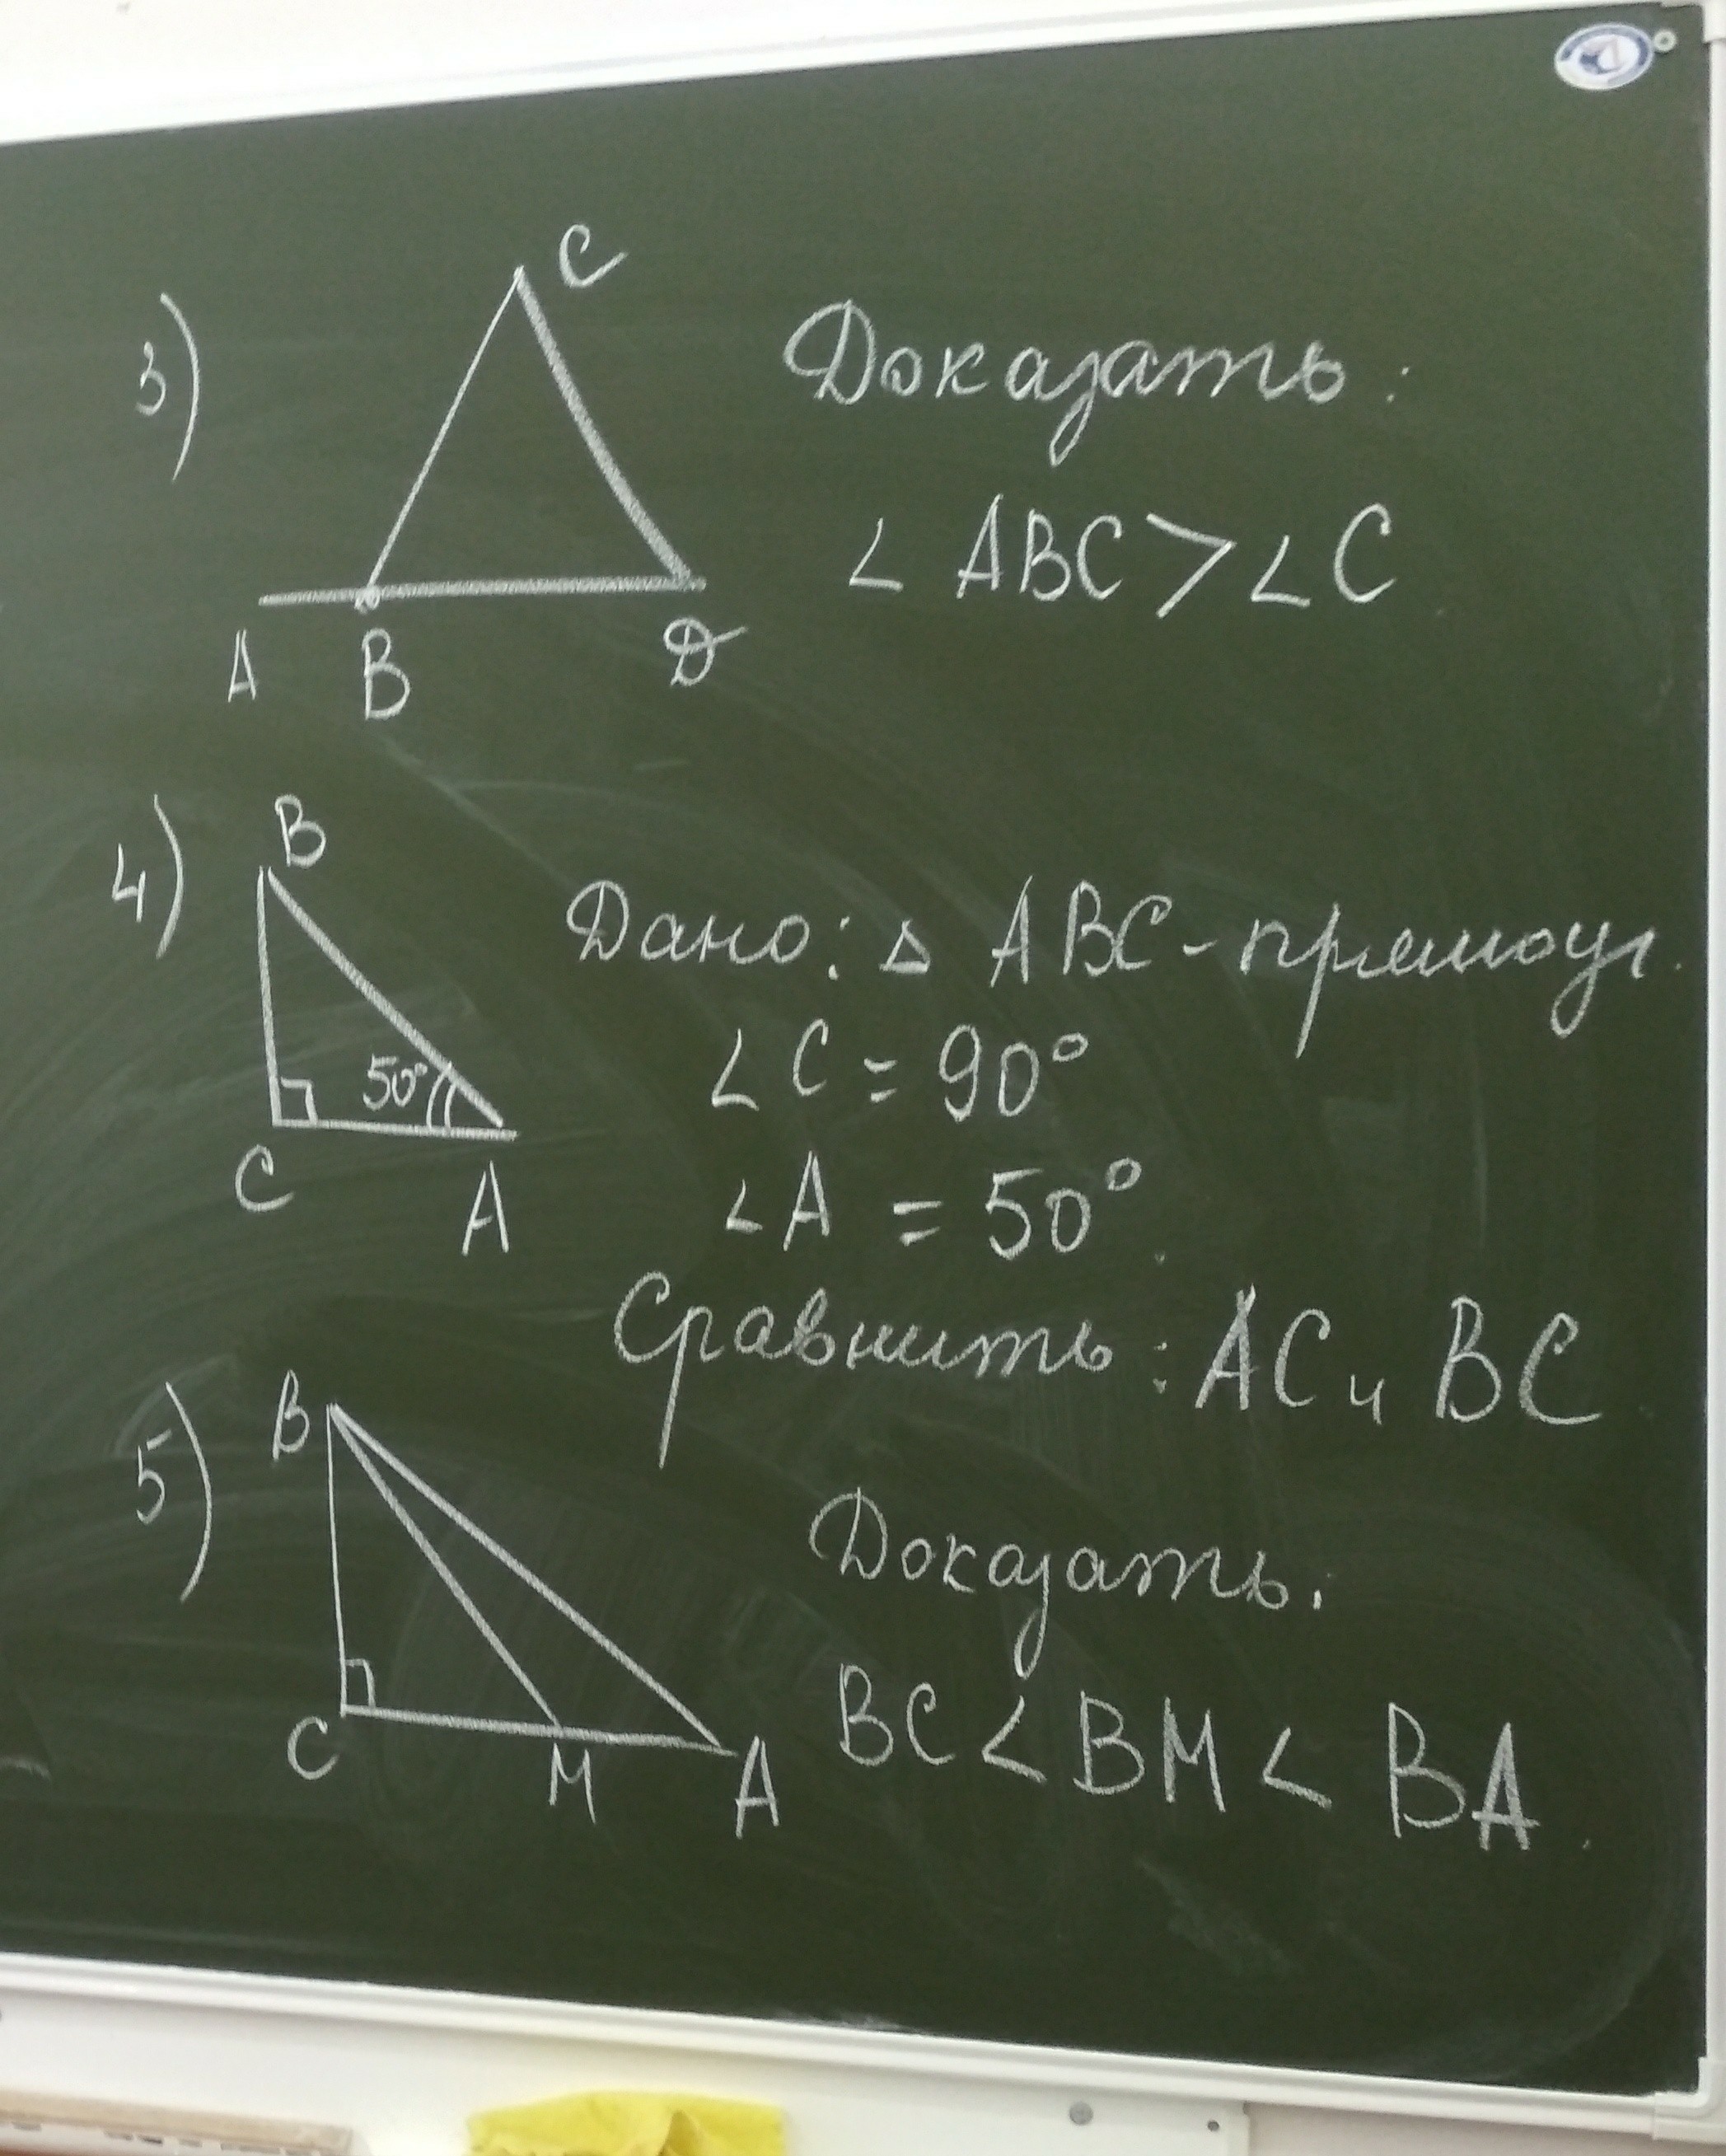 3)
C
A B D
Доказать:
∠ ABC > ∠ C
4)
B
50°
C A
Дано: △ ABC - прямоуг.
∠ C = 90°
∠ A = 50°
Сравнить: AC и BC
5)
B
C M A
Доказать.
BC < BM < BA